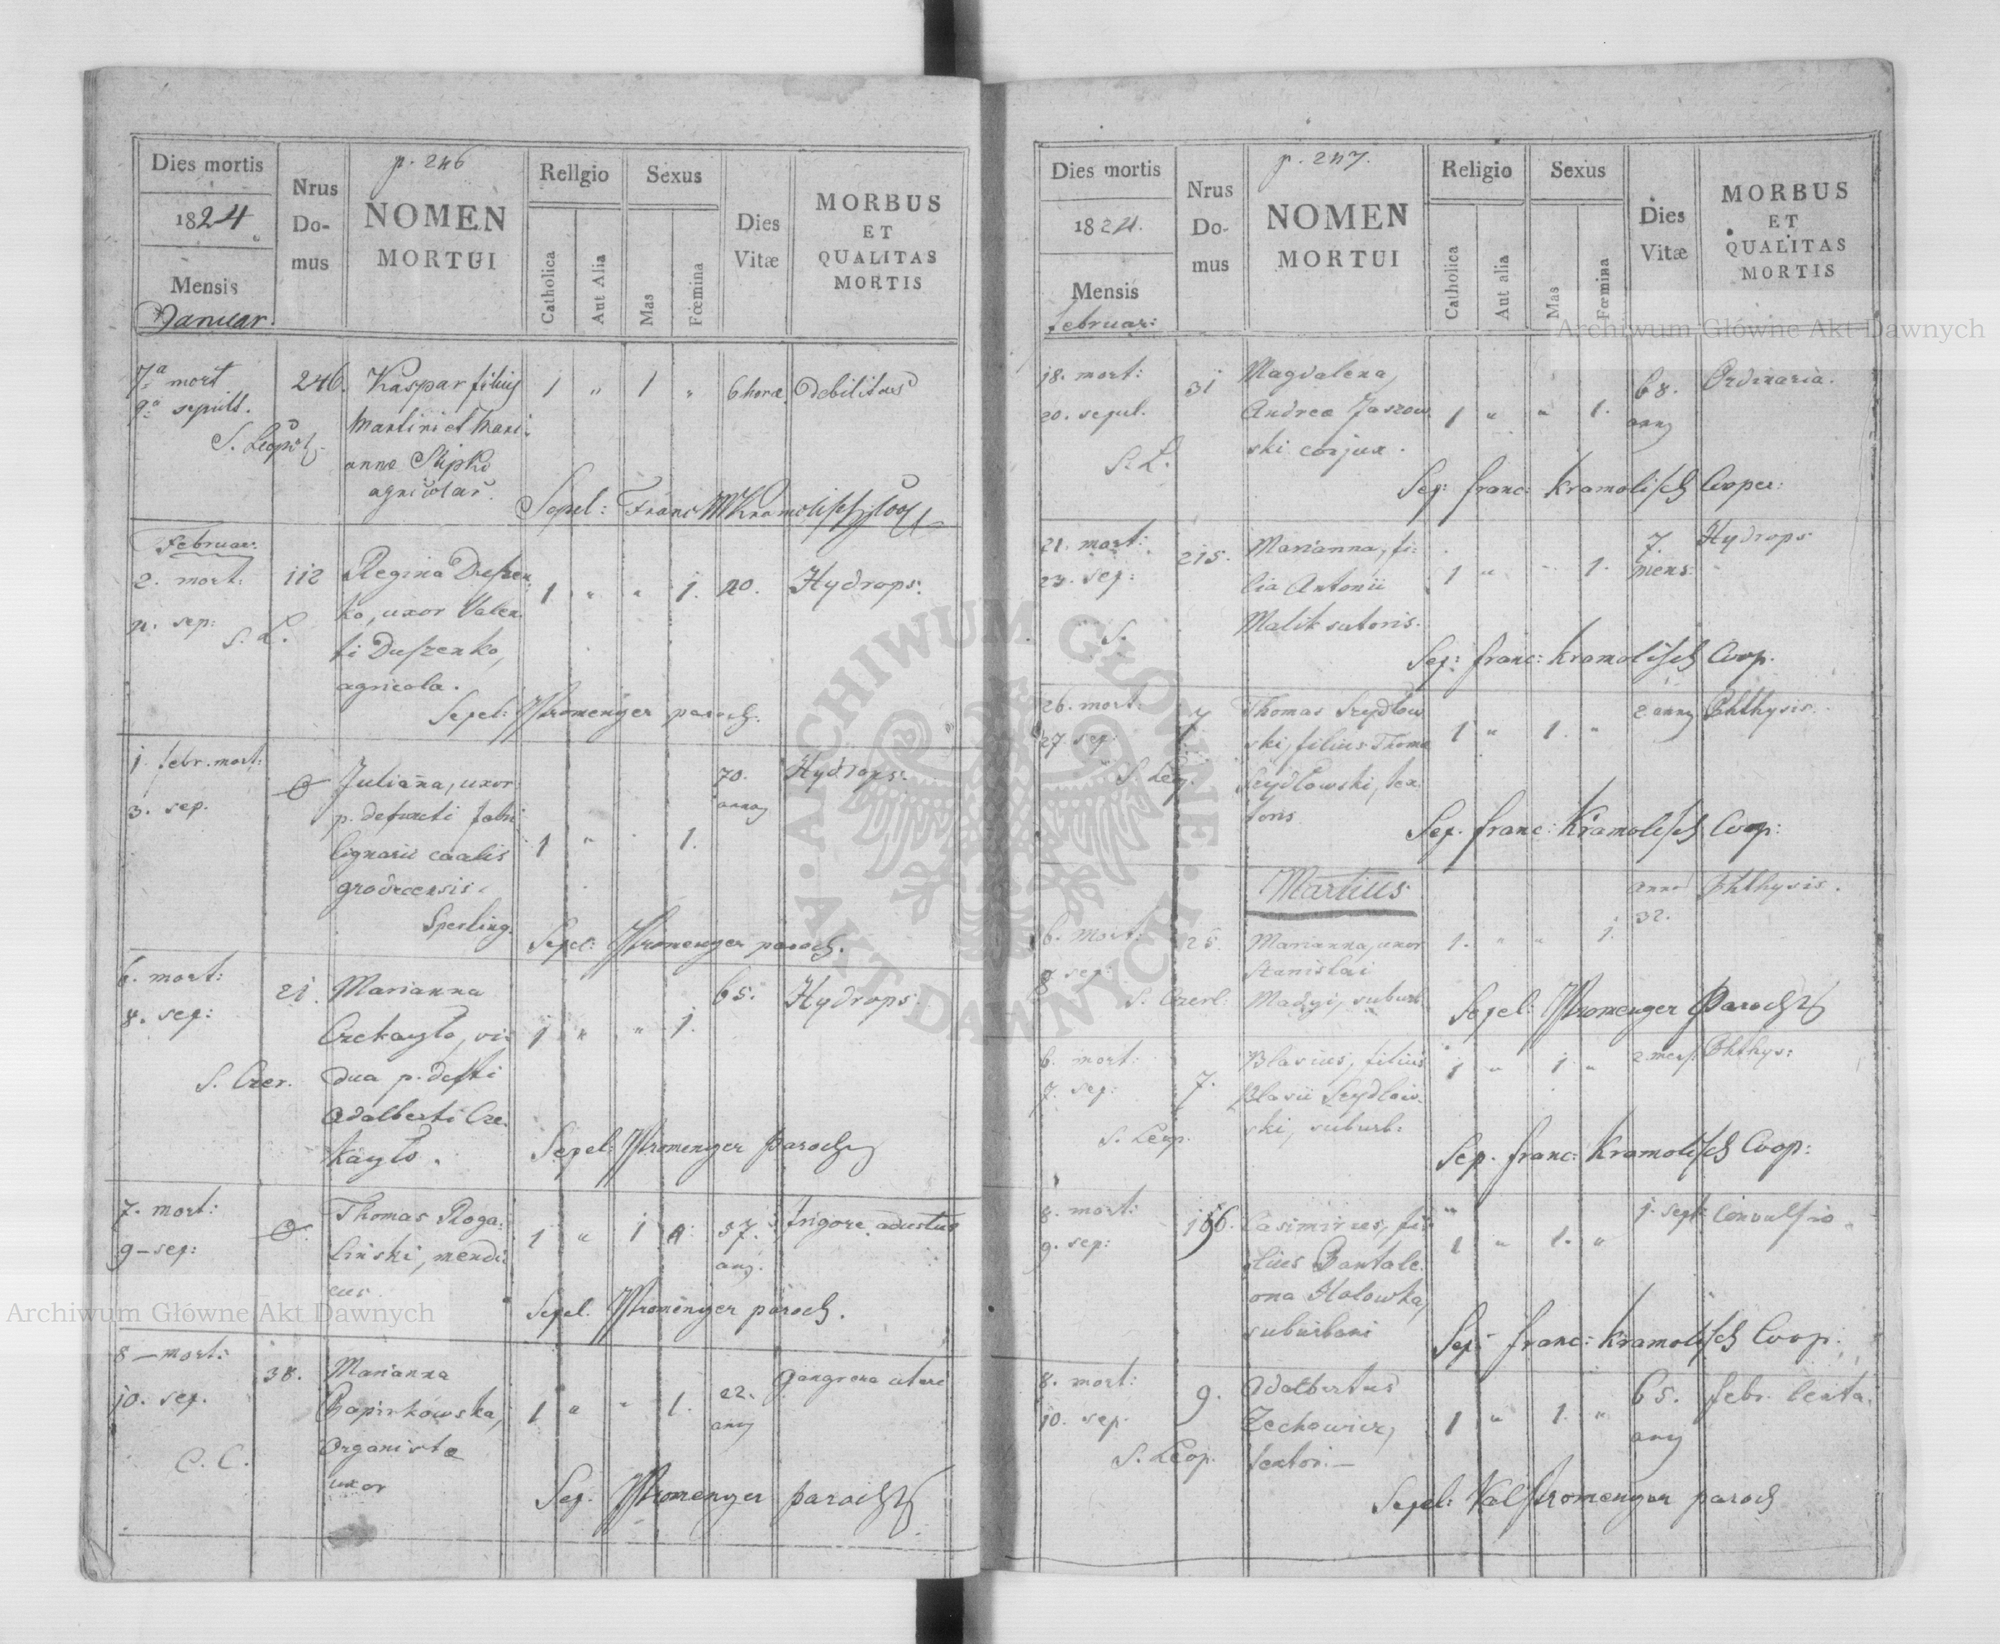 Dies mortis
1824.
Mensis
Januar.
Nrus
Do-
mus
p. 246
NOMEN
MORTUI
Religio
Catholica
Aut Alia
Sexus
Mas
Fœmina
Dies
Vitæ
MORBUS
ET
QUALITAS
MORTIS
7a mort 246. Kaspar filius 1 " 1 " 6 horæ. Debilitas
9a sepult. Martini et Mari-
S. Leopol.
annæ
agricolar.
Sepel: Franc Kramolisch Coop
Februar.
2. mort: 112 Regina Duszen- 1 " " 1. 40. Hydrops:
4. sep: ko, uxor Valen-
S. L.
ti Duszenko,
agricola.
Sepel: Stromenger paroch.
1. febr. mort: Julianna, uxor 70. Hydrops:
3. sep. p. defuncti Fabri annor
lignarii 1 " 1.
grodecensis.
Sperling.
Sepel: Stromenger paroch.
6. mort: 21. Marianna 65. Hydrops.
8. sep: Czekayło, vi- 1 " " 1.
S. Czer. dua p. defti
Adalberti Cze-
kayło.
Sepel: Stromenger Paroch
7. mort: Thomas Roga- 1 " 1 57. frigore adustus
9 - sep: liński, mendi- ann.
cus.
Sepel. Stromenger paroch.
8 - mort: 38. Marianna 22. Gangrena uteri
10. sep. Papirkowska, 1 " " 1. ann
C. C. Organistæ
uxor
Sep. Stromenger paroch
Dies mortis
1824.
Mensis
februar:
Nrus
Do-
mus
p. 247.
NOMEN
MORTUI
Religio
Catholica
Aut alia
Sexus
Mas
Fœmina
Dies
Vitæ
MORBUS
ET
QUALITAS
MORTIS
18. mort: 31 Magdalena, 68. Ordinaria.
20. sepul. Andreæ Jaszow- 1 " " 1. ann
S. L. ski conjux.
Sep: franc: Kramolisch Cooper:
21. mort: 215. Marianna, fi- 7. Hydrops
23. sep: lia Antonii 1 " 1. mens:
S. Malik sutoris.
Sep: franc: Kramolisch Coop.
26. mort: 7 Thomas Szydłow- 1 " 1. " 2 ann Phthysis.
27 sep: ski, filius Thomæ
S. Leop. Szydłowski, tex-
toris
Sep. franc: Kramolisch Coop:
Martius
anno Phthysis.
32.
6. mort: 25. Marianna, uxor 1. " " 1.
8. sep: Stanislai
S. Czerl: suburb:
Sepel: Stromenger Paroch
6. mort: Blasius, filius 1 " 1 " 2 mens. Phthys:
7. sep: 7. Blasii Szydłow-
S. Leop. ski, suburb:
Sep. franc: Kramolisch Coop:
8. mort: 166. Casimirus, fi- 1. sept: Convulsio
9. sep: lius Pantale- 1 " 1. "
ona Holowka,
suburbani
Sep: franc: Kramolisch Coop:
8. mort: 9. Adalbertus 65. febr. lenta.
10. sep. Zechowicz, 1 " 1. " ann
S. Leop. textor. -
Sepel: Val Stromenger paroch
Archiwum Główne Akt Dawnych
Archiwum Główne Akt Dawnych
ARCHIWUM GŁÓWNE
AKT DAWNYCH